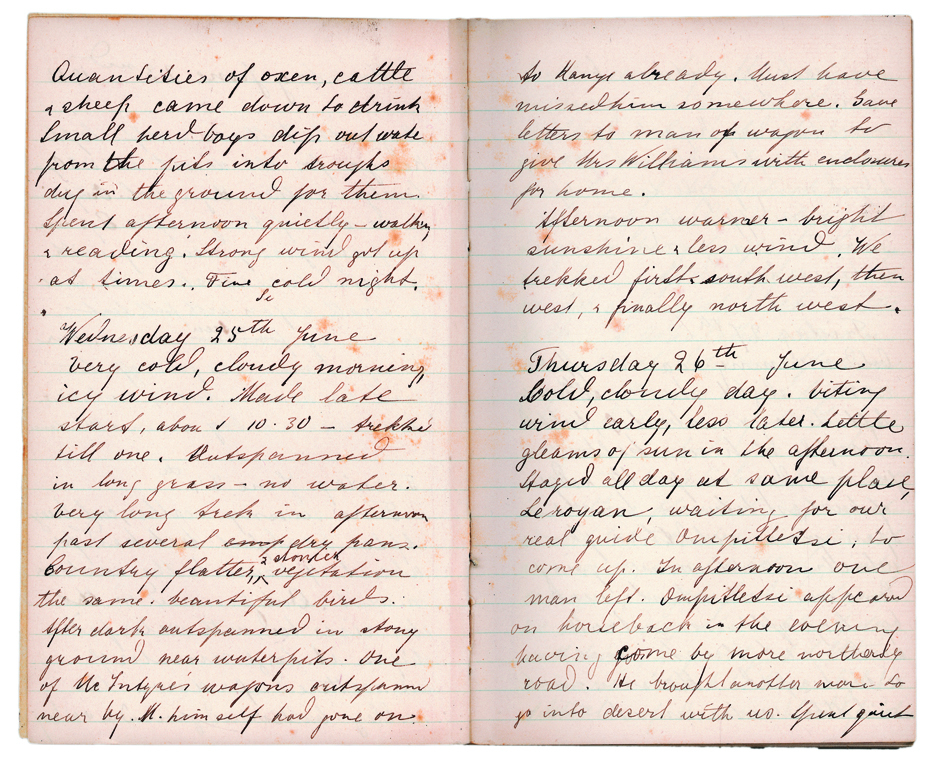 Quantities of oxen, cattle
& sheep came down to drink
Small herd boys dip out wate
from the pits into troughs
dug in the ground for them.
Spent afternoon quietly – walking
& reading. Strong wind got up
at times. Fine cold night.
Wednesday 25th June
Very cold, cloudy morning,
icy wind. Made late
start, about 10.30 – trekked
till one. Outspanned
in long grass – no water.
Very long trek in afternoon
past several dry pans.
Country flatter, & stonier vegetation
the same. beautiful birds.
After dark outspanned in stony
ground near waterpits. One
of McIntyre's wagons outspanned
near by. M. himself had gone on
to Kanye already. Must have
missed him somewhere. Gave
letters to man of wagon to
give Mrs Williams with enclosures
for home.
Afternoon warmer – bright
sunshine & less wind. We
trekked first south west, then
west, & finally north west.
Thursday 26th June
Cold, cloudy day. biting
wind early, less later. Little
gleams of sun in the afternoon.
Stayed all day at same place,
Leroyan, waiting for our
real guide Ompilletsi, to
come up. In afternoon one
man left. Ompilletsi appeared
on horseback in the evening
having come by more northerly
road. He brought another man to
go into desert with us. Spent quiet